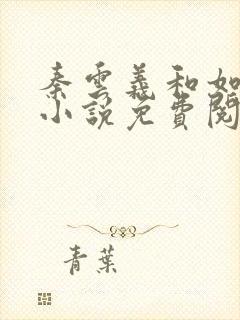 秦雲義和如
小說免費閱
青葉